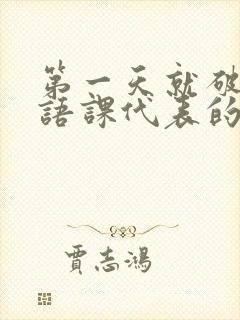 第一天就破
語課代表的
賈志鴻